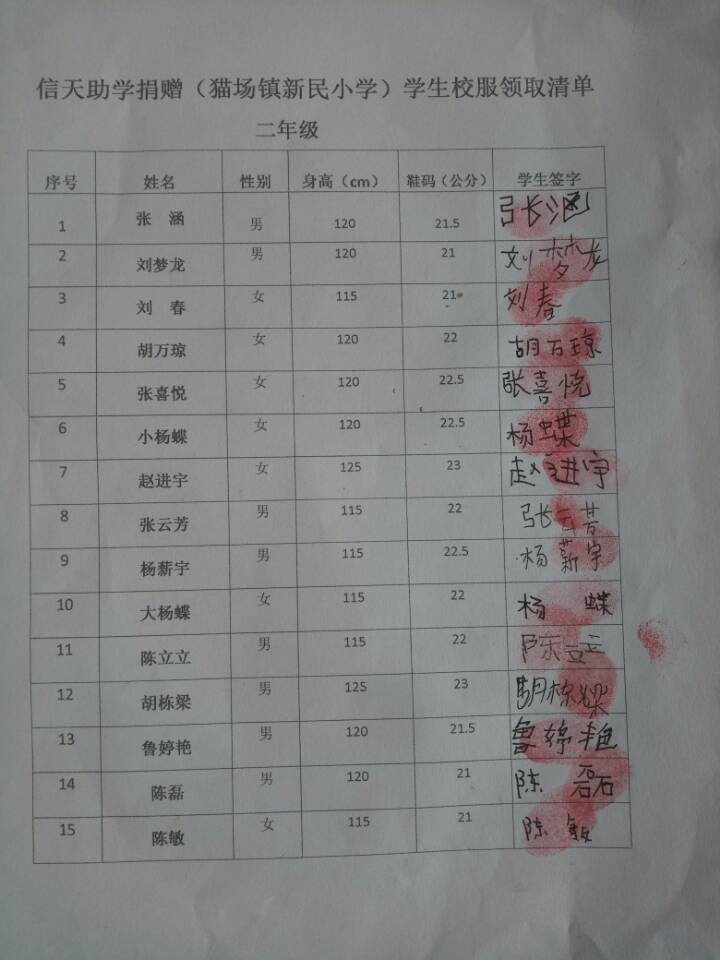 信天助学捐赠（猫场镇新民小学）学生校服领取清单
二年级
序号 姓名 性别 身高（cm） 鞋码（公分） 学生签字
1 张 涵 男 120 21.5 张涵
2 刘梦龙 男 120 21 刘梦龙
3 刘 春 女 115 21 刘春
4 胡万琼 女 120 22 胡万琼
5 张喜悦 女 120 22.5 张喜悦
6 小杨蝶 女 120 22.5 杨蝶
7 赵进宇 女 125 23 赵进宇
8 张云芳 男 115 22 张云芳
9 杨薪宇 男 115 22.5 杨薪宇
10 大杨蝶 女 115 22 杨 蝶
11 陈立立 男 115 22 陈立立
12 胡栋梁 男 125 23 胡栋梁
13 鲁婷艳 男 120 21.5 鲁婷艳
14 陈磊 男 120 21 陈磊
15 陈敏 女 115 21 陈敏